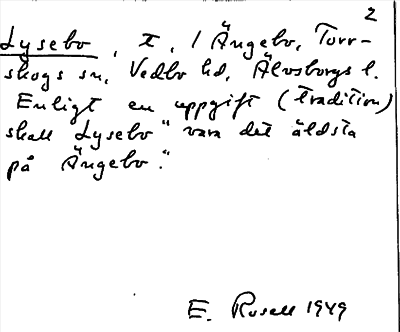 2
Lysebo, t, 1 Ängebo, Torr-
skogs sn, Vedbo hd, Älvsborgs l.
Enligt en uppgift (tradition)
skall Lysebo "vara det äldsta
på Ängebo".
E. Rosell 1949